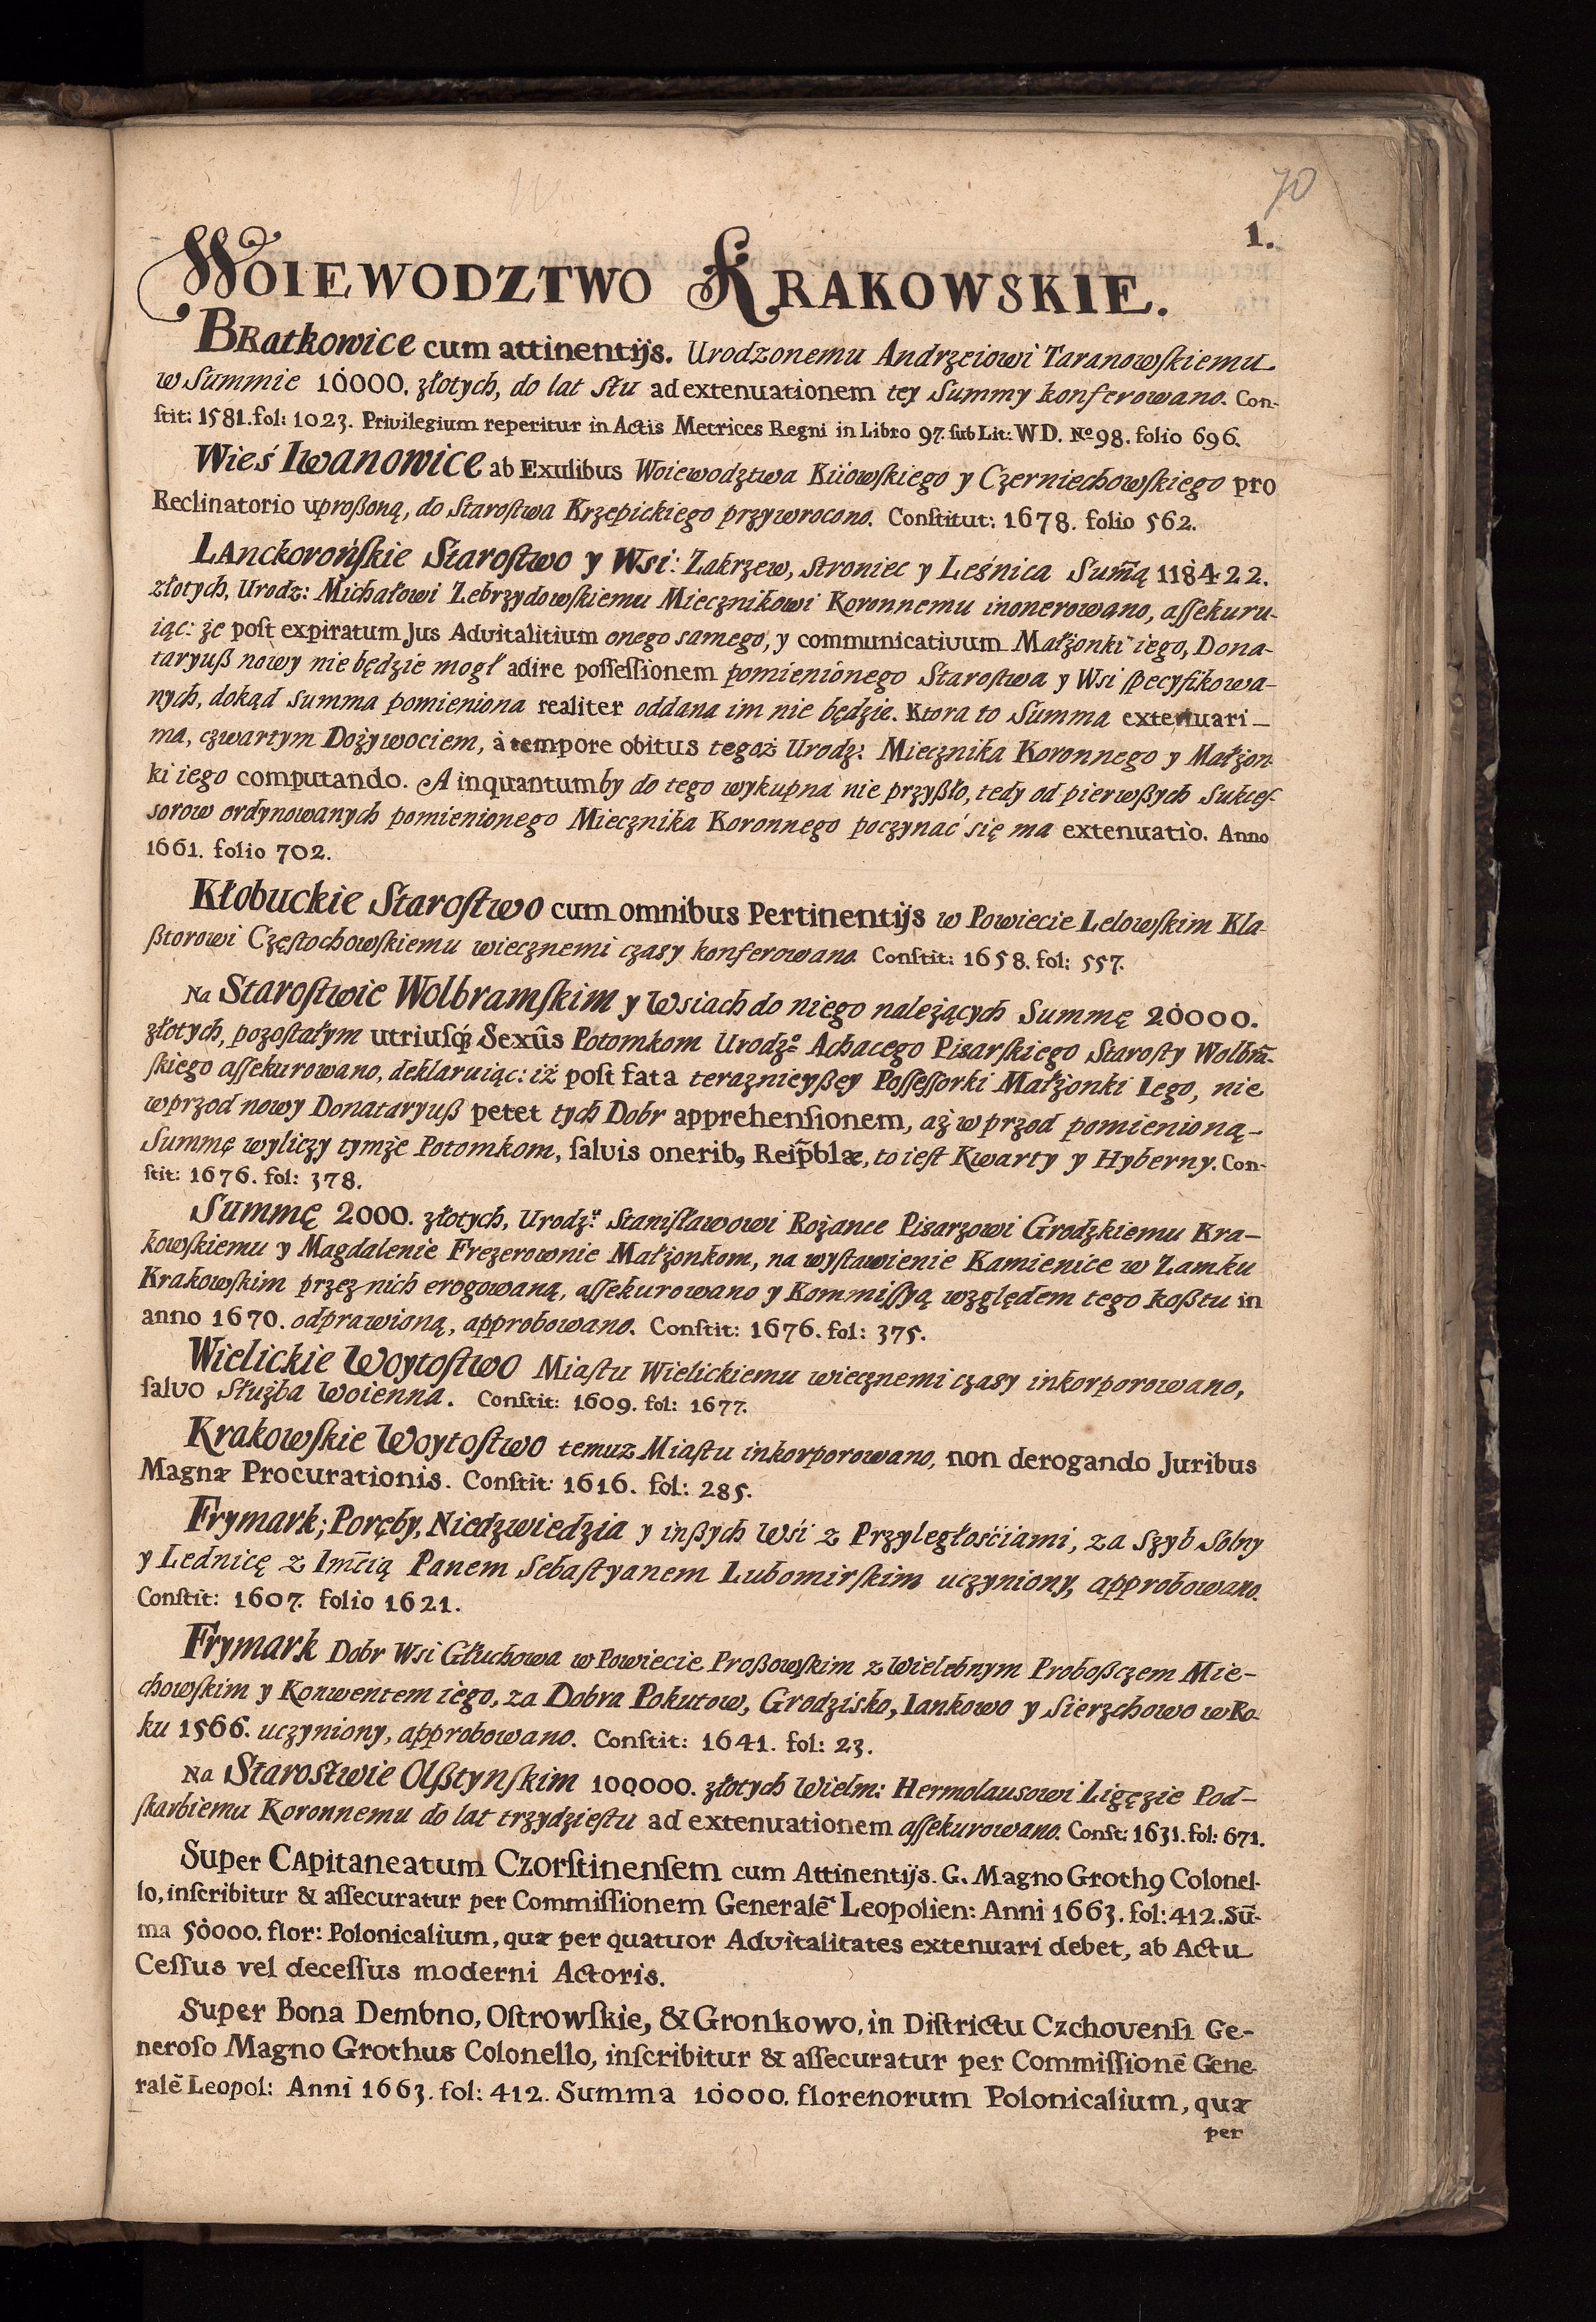 70
1.
WOIEWODZTWO KRAKOWSKIE.
BRatkowice cum attinentijs. Urodzonemu Andrzeiowi Taranowſkiemu
w Summie 10000. złotych, do lat ſtu ad extenuationem tey Summy konferowano. Con-
ſtit: 1581. fol: 1023. Privilegium reperitur in Actis Metrices Regni in Libro 97. ſub Lit: WD. No 98. folio 696.
Wieś Iwanowice ab Exulibus Woiewodztwa Kiiowſkiego y Czerniechowſkiego pro
Reclinatorio uproßoną, do Staroſtwa Krzepickiego przywrocono. Conſtitut: 1678. folio 562.
LAnckorońſkie Staroſtwo y Wsi: Zakrzew, Stroniec y Leśnica Sum̃ą 118422.
złotych, Urodz: Michałowi Zebrzydowſkiemu Miecznikowi Koronnemu inonerowano, aſſekuru-
iąc: że poſt expiratum Jus Advitalitium onego samego, y communicativum Małżonki iego, Dona-
taryuß nowy nie będzie mogł adire poſſeſſionem pomienionego Staroſtwa y Wsi ſpecyfikowa-
nych, dokąd summa pomieniona realiter oddana im nie będzie. Ktora to Summa extenuari
ma, czwartym Dożywociem, à tempore obitus tegoż Urodz: Miecznika Koronnego y Małżon-
ki iego computando. A inquantumby do tego wykupna nie przyßło, tedy od pierwßych Sukceſ-
sorow ordynowanych pomienionego Miecznika Koronnego poczynać się ma extenuatio. Anno
1661. folio 702.
Kłobuckie Staroſtwo cum omnibus Pertinentijs w Powiecie Lelowſkim Kla-
ßtorowi Częſtochowſkiemu wiecznemi czasy konferowano. Conſtit: 1658. fol: 557.
Na Staroſtwie Wolbramſkim y Wsiach do niego należących Summę 20000.
złotych, pozoſtałym utriuſq́ Sexûs Potomkom Urodzo Achacego Pisarſkiego Staroſty Wolbrã-
ſkiego aſſekurowano, deklaruiąc: iż poſt fata teraznieyßey Poſſeſſorki Małżonki Iego, nie
wprzod nowy Donataryuß petet tych Dobr apprehenſionem, aż wprzod pomienioną
Summę wyliczy tymże Potomkom, ſalvis onerib9 Reip̃blæ, to ieſt Kwarty y Hyberny. Con-
ſtit: 1676. fol: 378.
Summę 2000. złotych, Urodz: Staniſławowi Rożance Pisarzowi Grodzkiemu Kra-
kowſkiemu y Magdalenie Frezerownie Małżonkom, na wyſtawienie Kamienice w Zamku
Krakowſkim przez nich erogowaną, aſſekurowano y Kommiſſyą względem tego koßtu in
anno 1670. odprawioną, approbowano. Conſtit: 1676. fol: 375.
Wielickie Woytoſtwo Miaſtu Wielickiemu wiecznemi czasy inkorporowano,
ſalvo Służba Woienna. Conſtit: 1609. fol: 1677.
Krakowſkie Woytoſtwo temuz Miaſtu inkorporowano, non derogando Juribus
Magnæ Procurationis. Conſtit: 1616. fol: 285.
Frymark; Poręby, Niedzwiedzia y inßych Wśi z Przyległościami, za Szyb Solny
y Lednicę z Im̃cią Panem Sebaſtyanem Lubomirſkim uczyniony, approbowano.
Conſtit: 1607. folio 1621.
Frymark Dobr Wsi Głuchowa w Powiecie Proßowſkim z Wielebnym Proboßczem Mie-
chowſkim y Konwentem iego, za Dobra Pokutow, Grodzisko, Iankowo y Sierzchowo w Ro-
ku 1566. uczyniony, approbowano. Conſtit: 1641. fol: 23.
Na Staroſtwie Olßtynſkim 100000. złotych Wielm: Hermolausowi Ligęzie Pod-
ſkarbiemu Koronnemu do lat trzydzieſtu ad extenuationem aſſekurowano. Conſt: 1631. fol: 671.
Super CApitaneatum Czorſtinenſem cum Attinentijs. G. Magno Groth9 Colonel-
lo, inſcribitur & aſſecuratur per Commiſſionem Generalẽ Leopolien: Anni 1663. fol: 412. Sũ-
ma 50000. flor: Polonicalium, quæ per quatuor Advitalitates extenuari debet, ab Actu
Ceſſus vel deceſſus moderni Actoris.
Super Bona Dembno, Oſtrowſkie, & Gronkowo, in Diſtrictu Czchovenſi Ge-
neroſo Magno Grothus Colonello, inſcribitur & aſſecuratur per Commiſſionẽ Gene-
ralẽ Leopol: Anni 1663. fol: 412. Summa 10000. florenorum Polonicalium, quæ
per